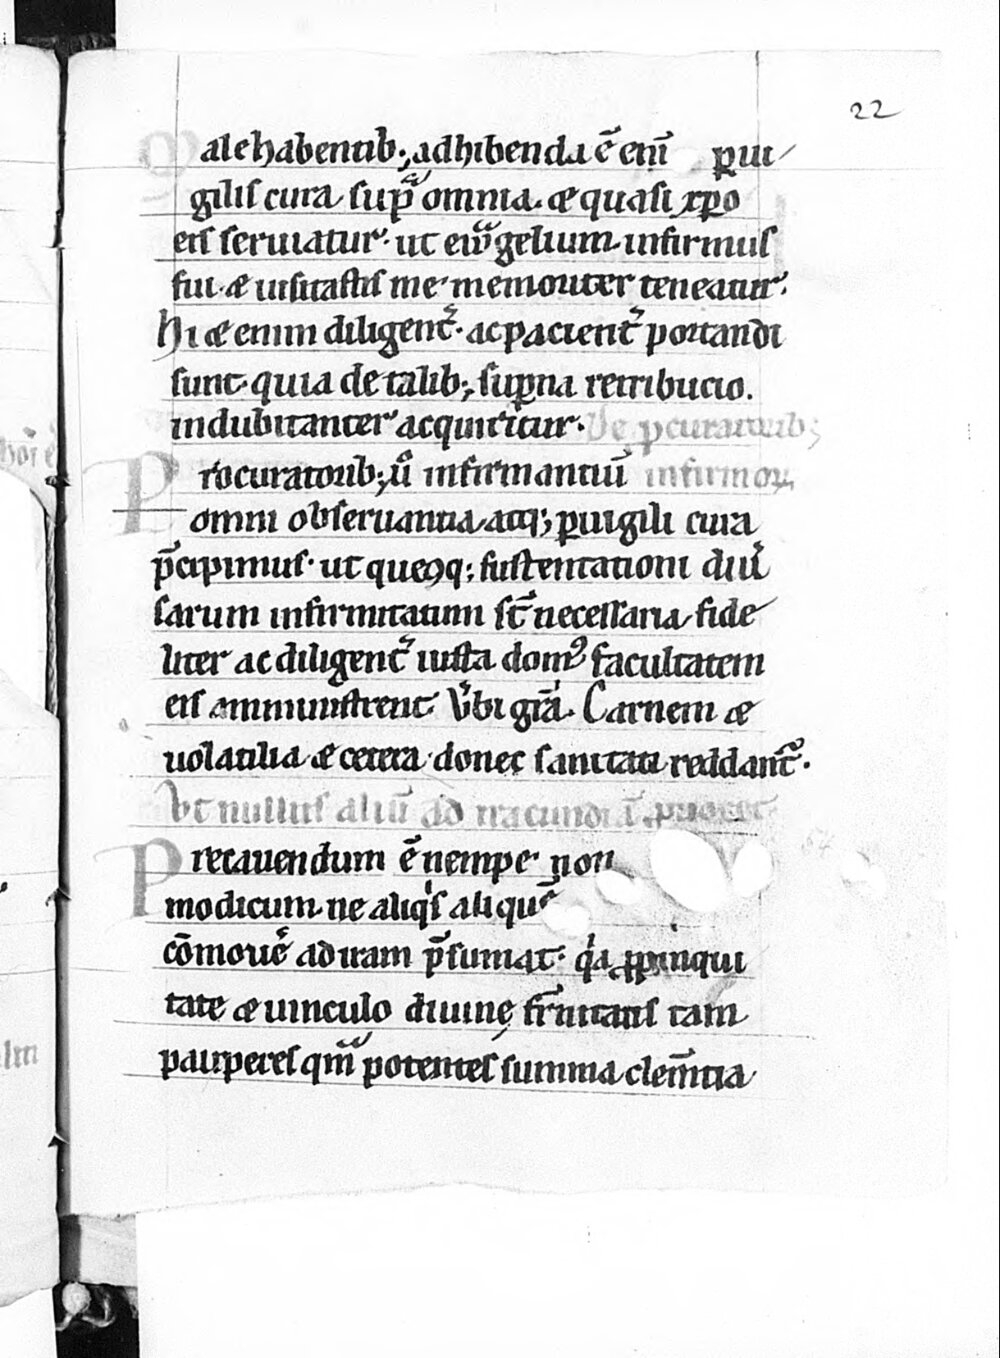 22
Male habentib; adhibenda ē eni᷎ ꝑui
gilis cura supᷓ omnia. & quasi xp̄o
eis seruiatur. ut ewᷓgelium. infirmus
fui. & uisitastis me. memoriter teneatur.
Hi & enim diligent᷑. ac pacient᷑ portandi
sunt. quia de talib; suꝑna retribucio.
indubitanter acquiritur. De ꝓcuratorib;
Procuratorib; u͛o infirmantiū infirmoꝝ
omni obseruantia. atq; ꝑuigili cura
p̄cipimus. ut queꝯq; sustentationi diu͛
sarum infirmitatum st̄ necessaria. fide
liter ac diligent᷑ iuxta domꝰ facultatem
eis amministrent. V͛bi grā. Carnem &
uolatilia & cetera. donec sanitati reddant᷑.
Vt nullus aliū ad iracundiā ꝓuocet
Precauendum ē nempe non
modicum. ne aliqͥs aliquē
cōmoue͛ ad iram p̄sumat. qͥa ꝓpinqui
tate & uinculo diuinę fr̄nitatis tam
pauperes qᷓm potentes summa clem̄tia